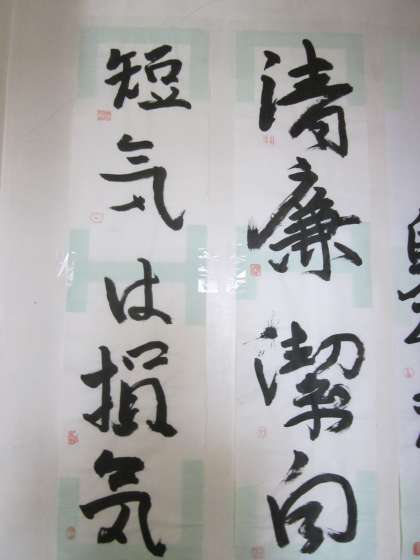 清廉潔白
短気は損気